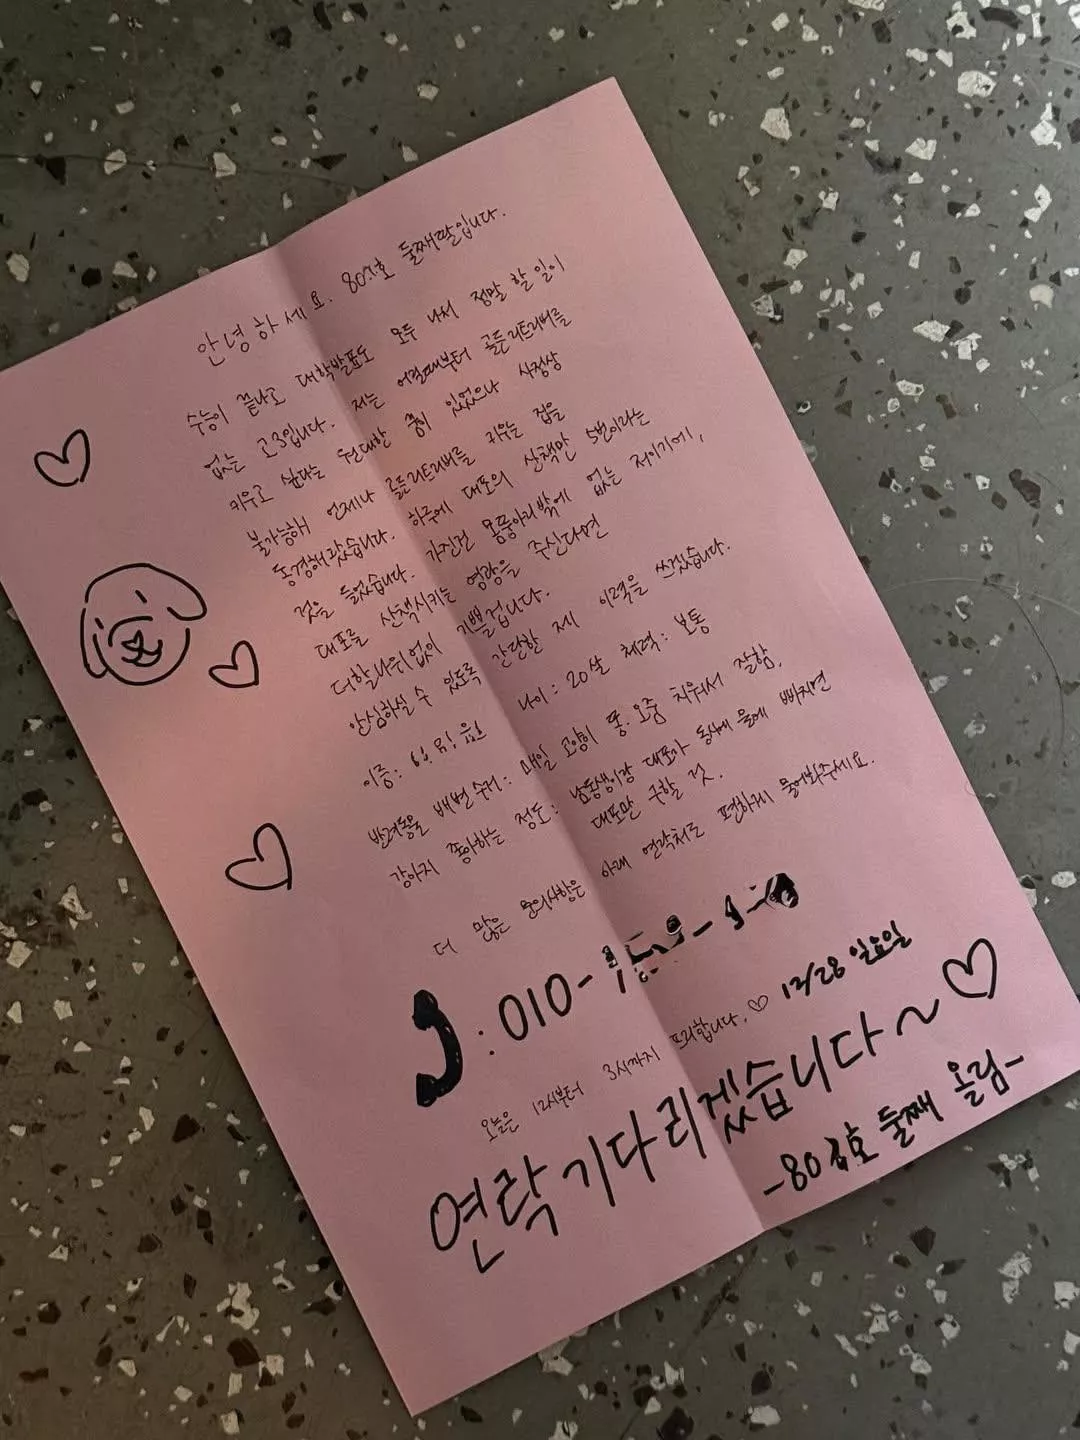 안녕하세요. 80x호 둘째딸입니다.
수능이 끝나고 대학발표도 모두 나서 정말 할 일이
없는 고3입니다. 저는 어릴때부터 골든리트리버를
키우고 싶다는 원대한 꿈이 있었으나 사정상
불가능해 언제나 골든리트리버를 키우는 집을
동경해왔습니다. 하루에 대포의 산책만 5번이라는
것을 들었습니다. 가진건 몸뚱아리밖에 없는 저이기에,
대포를 산책시키는 영광을 주신다면
더할나위없이 기쁠겁니다.
안심하실 수 있도록 간단한 제 이력을 쓰겠습니다.
이름: 나이: 20살 체력: 보통
반려동물 배변 수거: 매일 고양이 똥.오줌 치워서 잘함.
강아지 좋아하는 정도: 남동생이랑 대포가 동시에 물에 빠지면
대포만 구할 것.
더 많은 문의사항은 아래 연락처로 편하게 물어봐주세요.
: 010-
오늘은 12시부터 3시까지 프리합니다. ♡ 12/28 일요일
연락 기다리겠습니다~ ♡
-80호 둘째 올림-